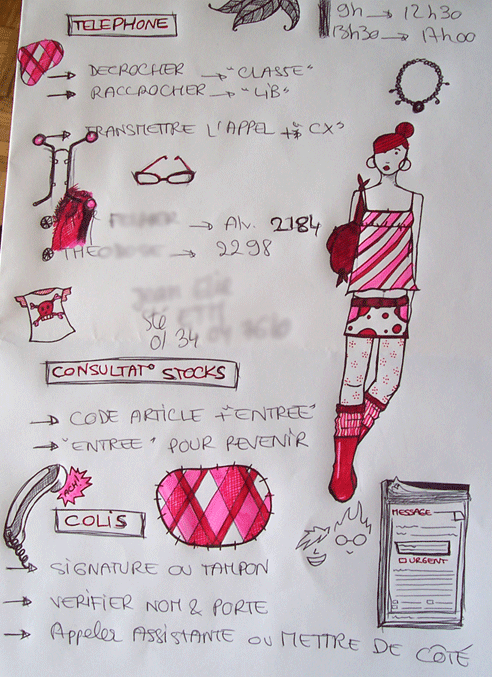 TELEPHONE
9h → 12h30
13h30 → 17h00
→ DECROCHER → "CLASSE"
→ RACCROCHER → "LIB"
→ TRANSMETTRE L'APPEL + CX"
→ Alv. 2184
→ 2298
01 34
CONSULTAT° STOCKS
→ CODE ARTICLE + "ENTREE"
→ "ENTREE" POUR REVENIR
COLIS
MESSAGE
URGENT
→ SIGNATURE OU TAMPON
→ VERIFIER NOM & PORTE
→ Appeler ASSISTANTE OU METTRE DE CÔTÉ